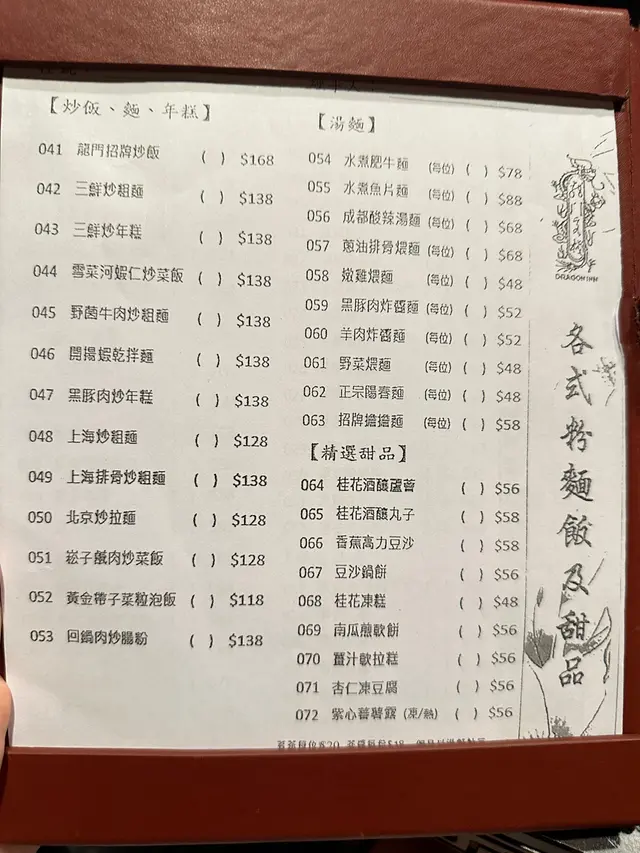 【炒飯、麵、年糕】
041 龍門招牌炒飯 ( ) $168
042 三鮮炒粗麵 ( ) $138
043 三鮮炒年糕 ( ) $138
044 雪菜河蝦仁炒菜飯 ( ) $138
045 野菌牛肉炒粗麵 ( ) $138
046 開揚蝦乾拌麵 ( ) $138
047 黑豚肉炒年糕 ( ) $138
048 上海炒粗麵 ( ) $128
049 上海排骨炒粗麵 ( ) $138
050 北京炒拉麵 ( ) $128
051 崧子鹹肉炒菜飯 ( ) $128
052 黃金帶子菜粒泡飯 ( ) $118
053 回鍋肉炒腸粉 ( ) $138
【湯麵】
054 水煮肥牛麵 (每位) ( ) $78
055 水煮魚片麵 (每位) ( ) $88
056 成都酸辣湯麵 (每位) ( ) $68
057 蔥油排骨煨麵 (每位) ( ) $68
058 嫩雞煨麵 (每位) ( ) $48
059 黑豚肉炸醬麵 (每位) ( ) $52
060 羊肉炸醬麵 (每位) ( ) $52
061 野菜煨麵 (每位) ( ) $48
062 正宗陽春麵 (每位) ( ) $48
063 招牌擔擔麵 (每位) ( ) $58
【精選甜品】
064 桂花酒釀蘆薈 ( ) $56
065 桂花酒釀丸子 ( ) $58
066 香蕉高力豆沙 ( ) $58
067 豆沙鍋餅 ( ) $56
068 桂花凍糕 ( ) $48
069 南瓜煎軟餅 ( ) $56
070 薑汁軟拉糕 ( ) $56
071 杏仁凍豆腐 ( ) $56
072 紫心蕃薯露 (凍/熱) ( ) $56
DRAGON INN
各式粉麵飯及甜品